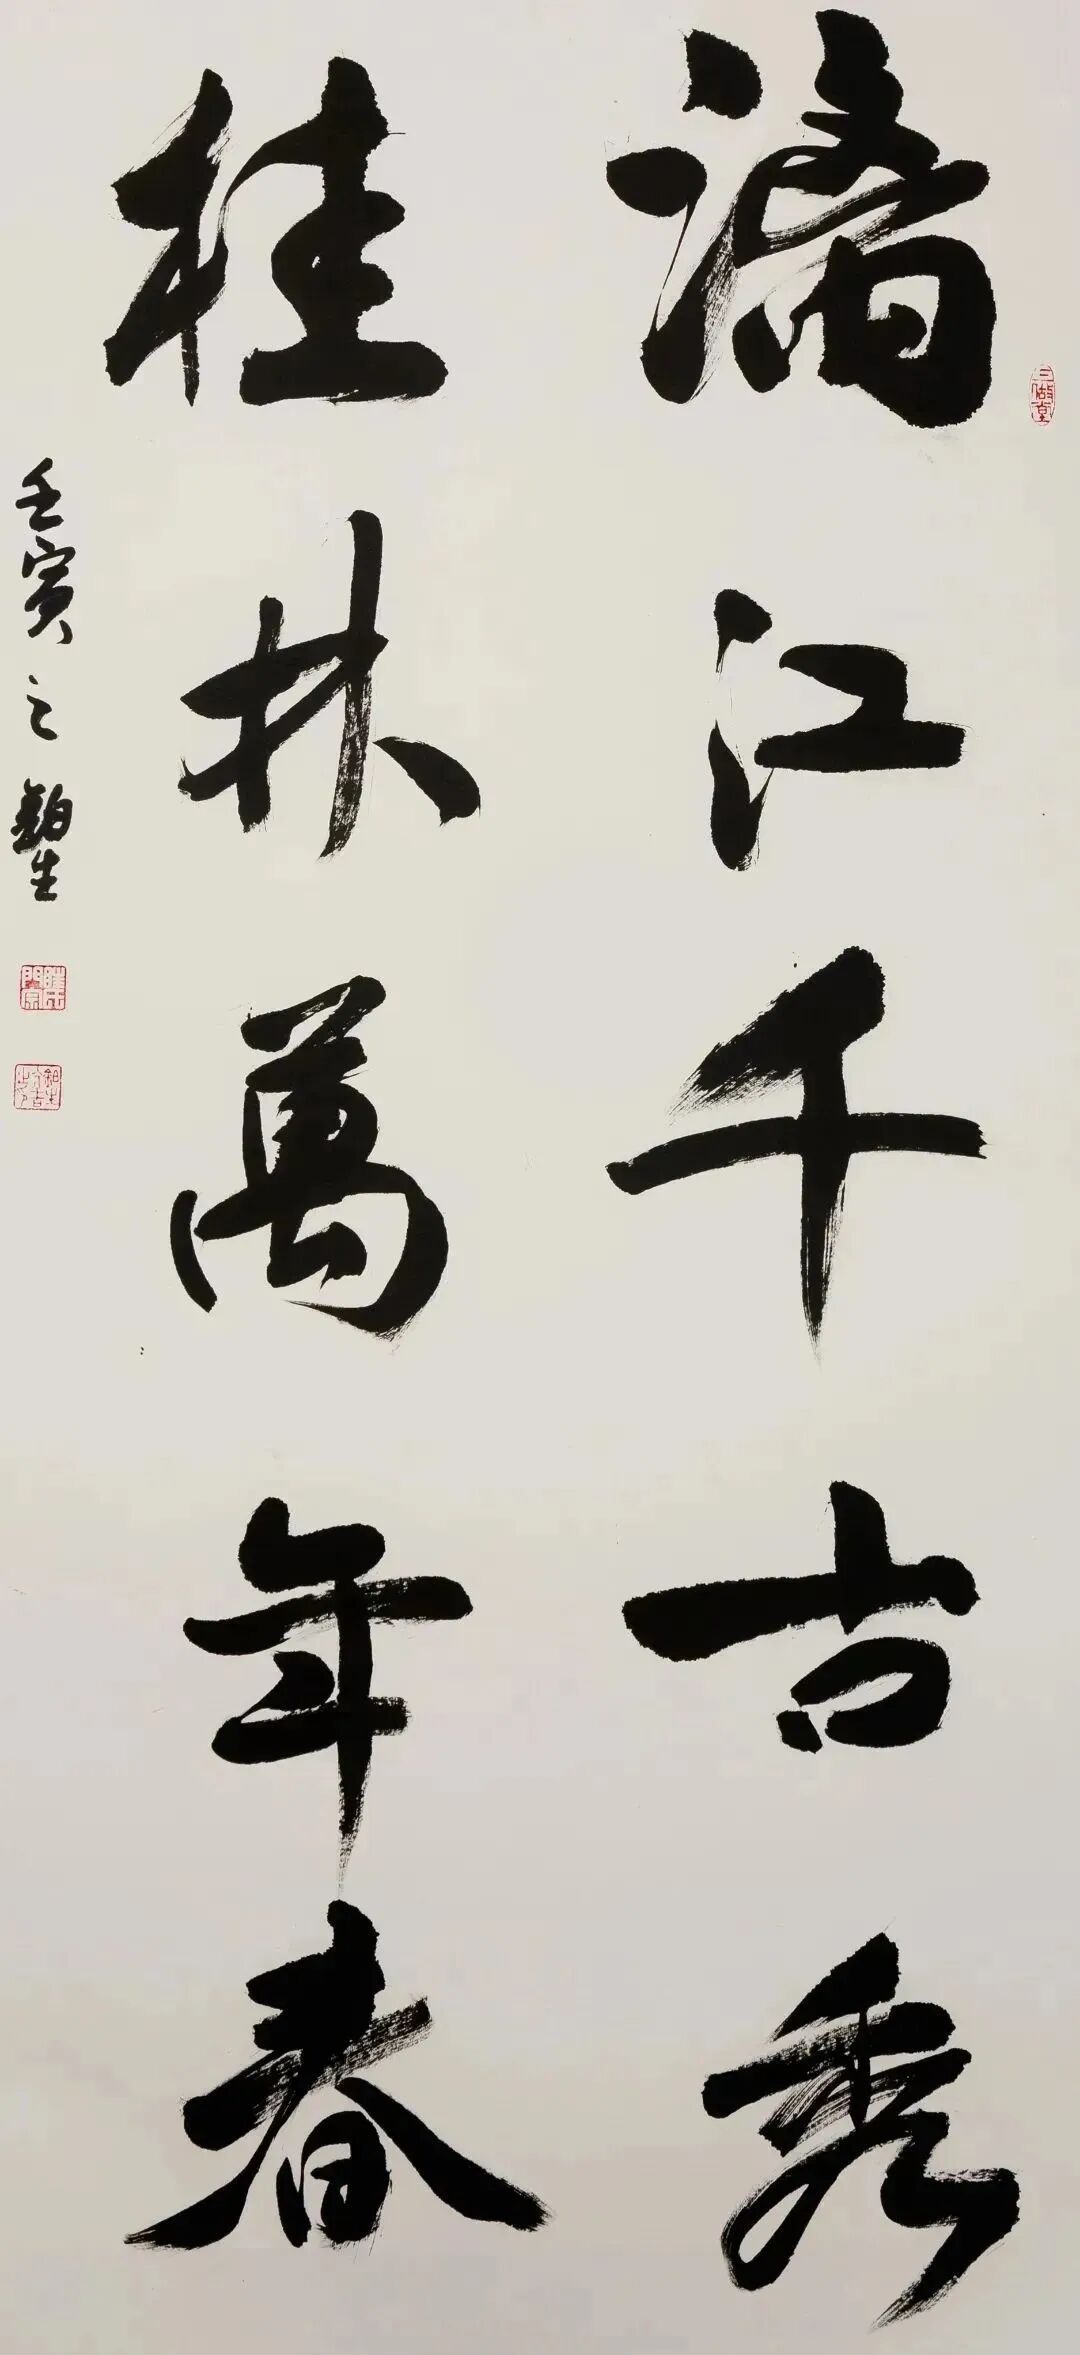 漓江千古秀
桂林萬年春
壬寅之
三做堂